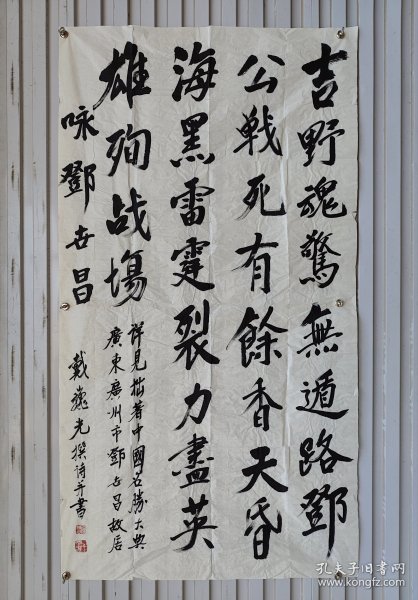 吉野魂驚無遁路鄧
公戦死有餘香天昏
海黑雷霆裂力盡英
雄殉战場
咏鄧世昌
詳見拙著中國名勝大典
廣東廣州市鄧世昌故居
戴巍光撰詩并書
孔夫子旧书网
www.kongfz.com